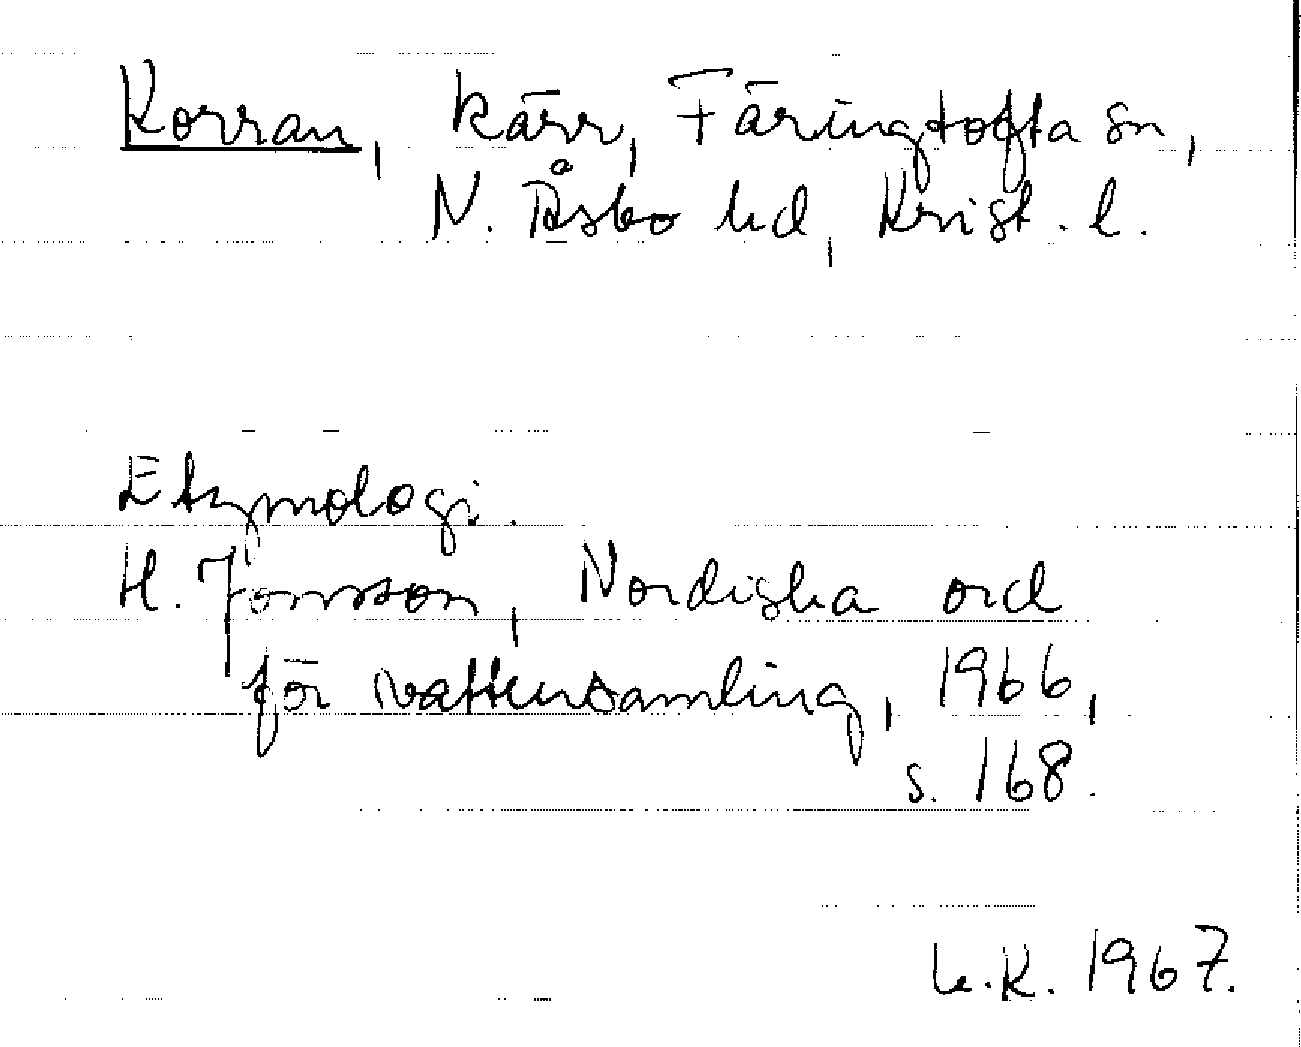 Korran, kärr, Färingtofta sn,
N. Åsbo hd, Krist. l.
Etymologi.
H. Jonsson, Nordiska ord
för vattensamling, 1966,
s. 168.
L.K. 1967.